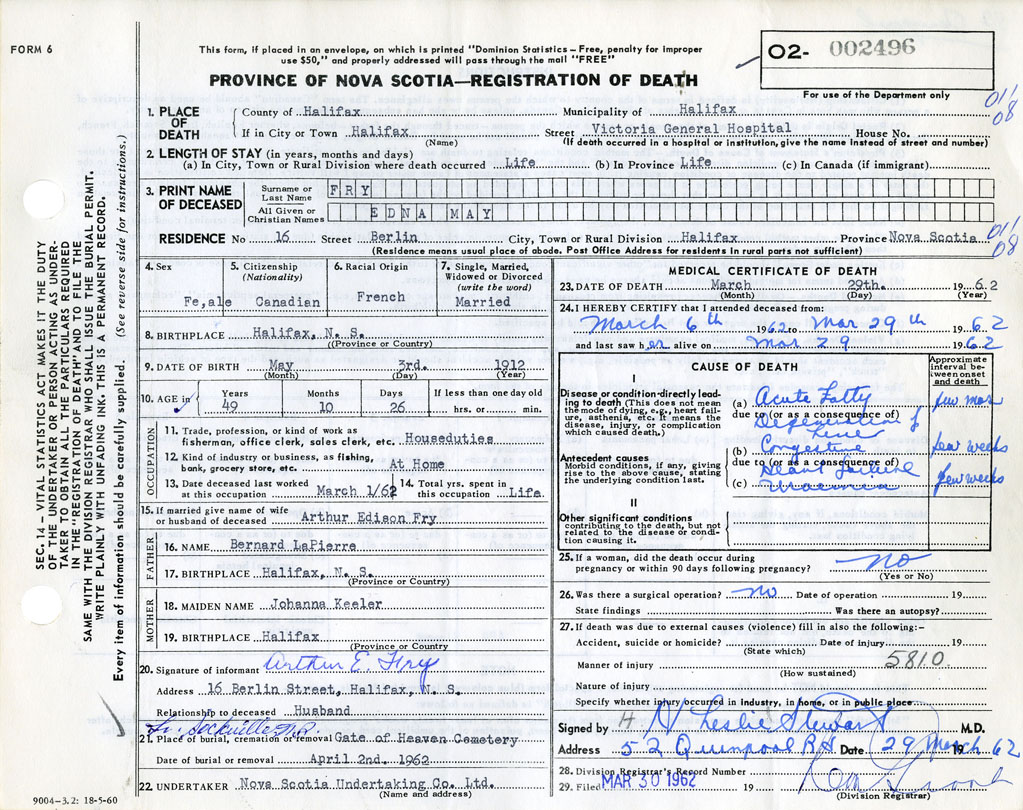 FORM 6
This form, if placed in an envelope, on which is printed "Dominion Statistics – Free, penalty for improper
use $50," and properly addressed will pass through the mail "FREE"
PROVINCE OF NOVA SCOTIA—REGISTRATION OF DEATH
02- 002496
For use of the Department only
011
08
1. PLACE OF DEATH
County of Halifax Municipality of Halifax
If in City or Town Halifax Street Victoria General Hospital House No.
(Name) (If death occurred in a hospital or institution, give the name instead of street and number)
2. LENGTH OF STAY (in years, months and days)
(a) In City, Town or Rural Division where death occurred Life (b) In Province Life (c) In Canada (if immigrant)
3. PRINT NAME OF DECEASED
Surname or Last Name FRY
All Given or Christian Names EDNA MAY
RESIDENCE No 16 Street Berlin City, Town or Rural Division Halifax Province Nova Scotia
011
08
(Residence means usual place of abode. Post Office Address for residents in rural parts not sufficient)
4. Sex
Fe,ale
5. Citizenship (Nationality)
Canadian
6. Racial Origin
French
7. Single, Married, Widowed or Divorced (write the word)
Married
8. BIRTHPLACE Halifax, N. S.
(Province or Country)
9. DATE OF BIRTH May 3rd. 1912
(Month) (Day) (Year)
10. AGE in Years Months Days If less than one day old
49 10 26 hrs. or min.
OCCUPATION
11. Trade, profession, or kind of work as
fisherman, office clerk, sales clerk, etc. Houseduties
12. Kind of industry or business, as fishing,
bank, grocery store, etc. At Home
13. Date deceased last worked at this occupation March 1/62
14. Total yrs. spent in this occupation Life
15. If married give name of wife
or husband of deceased Arthur Edison Fry
FATHER
16. NAME Bernard LaPierre
17. BIRTHPLACE Halifax, N. S.
(Province or Country)
MOTHER
18. MAIDEN NAME Johanna Keeler
19. BIRTHPLACE Halifax
(Province or Country
20. Signature of informant Arthur E. Fry
Address 16 Berlin Street, Halifax, N. S.
Relationship to deceased Husband
Sackville
21. Place of burial, cremation or removal Gate of Heaven Cemetery
Date of burial or removal April 2nd. 1962
22. UNDERTAKER Nova Scotia Undertaking Co. Ltd.
(Name and address)
9004–3.2: 18-5-60
MEDICAL CERTIFICATE OF DEATH
23. DATE OF DEATH March 29th. 1962
(Month) (Day) (Year)
24. I HEREBY CERTIFY that I attended deceased from:
March 6th 1962 to Mar 29th 1962
and last saw her alive on Mar 29 1962
CAUSE OF DEATH
Approximate interval between onset and death
I
Disease or condition directly leading to death (This does not mean the mode of dying, e.g., heart failure, asthenia, etc. It means the disease, injury, or complication which caused death.)
(a) Acute Fatty few mos
due to (or as a consequence of)
Degeneration of
(b) Congestive few weeks
Antecedent causes
Morbid conditions, if any, giving rise to the above cause, stating the underlying condition last.
due to (or as a consequence of)
Heart Failure
(c) few weeks
II
Other significant conditions
contributing to the death, but not related to the disease or condition causing it.
25. If a woman, did the death occur during
pregnancy or within 90 days following pregnancy? no
(Yes or No)
26. Was there a surgical operation? no Date of operation 19
State findings Was there an autopsy?
27. If death was due to external causes (violence) fill in also the following:–
Accident, suicide or homicide? Date of injury 19
(State which)
Manner of injury 5810
(How sustained)
Nature of injury
Specify whether injury occurred in industry, in home, or in public place
Signed by H Leslie Stewart M.D.
Address 52 Quinpool Rd Date 29 March 1962
28. Division Registrar's Record Number
29. Filed MAR 30 1962 19
(Division Registrar)
SEC. 14 – VITAL STATISTICS ACT MAKES IT THE DUTY
OF THE UNDERTAKER OR PERSON ACTING AS UNDER-
TAKER TO OBTAIN ALL THE PARTICULARS REQUIRED
IN THE "REGISTRATION OF DEATH" AND TO FILE THE
SAME WITH THE DIVISION REGISTRAR WHO SHALL ISSUE THE BURIAL PERMIT.
WRITE PLAINLY WITH UNFADING INK. THIS IS A PERMANENT RECORD.
Every item of information should be carefully supplied. (See reverse side for instructions.)